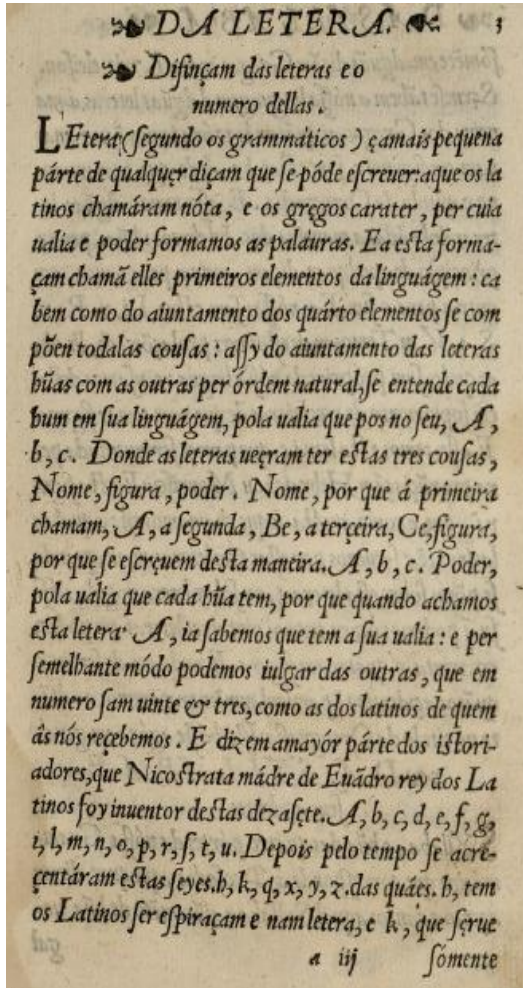 DA LETERA. 3
Difinçam das leteras e o
numero dellas.
LEtera (ſegundo os grammáticos) ę a mais pequena
párte de qualquęr diçam que ſe póde eſcreuer: a que os la
tinos chamáram nóta, e os gręgos carater, per cuia
ualia e poder formamos as paláuras. E a eſta forma-
çam chamã elles primeiros elementos da linguágem: ca
bem como do aiuntamento dos quátro elementos ſe com
põen todalas couſas: aſſy do aiuntamento das leteras
hũas com as outras per órdem natural, ſe entende cada
hum em ſua linguágem, pola ualia que pos no ſeu, A,
b, c. Donde as leteras uęram ter eſtas tres couſas,
Nome, figura, poder. Nome, por que á primeira
chamam, A, a ſegunda, Be, a terçeira, Ce, figura,
por que ſe eſcręuem deſta maneira. A, b, c. Poder,
pola ualia que cada hũa tem, por que quando achamos
eſta letera A, ia ſabemos que tem a ſua ualia: e per
ſemelhante módo podemos iulgar das outras, que em
numero ſam uinte & tres, como as dos latinos de quem
ás nós reçebemos. E dizem a mayór párte dos iſtori-
adores, que Nicoſtrata mádre de Euãdro rey dos La
tinos foy inuentor deſtas dezaſęte. A, b, c, d, e, f, g,
i, l, m, n, o, p, r, ſ, t, u. Depois pelo tempo ſe acre-
çentáram eſtas ſeyes. h, k, q, x, y, z. das quáes. h, tem
os Latinos ſer eſpiraçam e nam letera, e k, que ſęrue
a iij ſómente